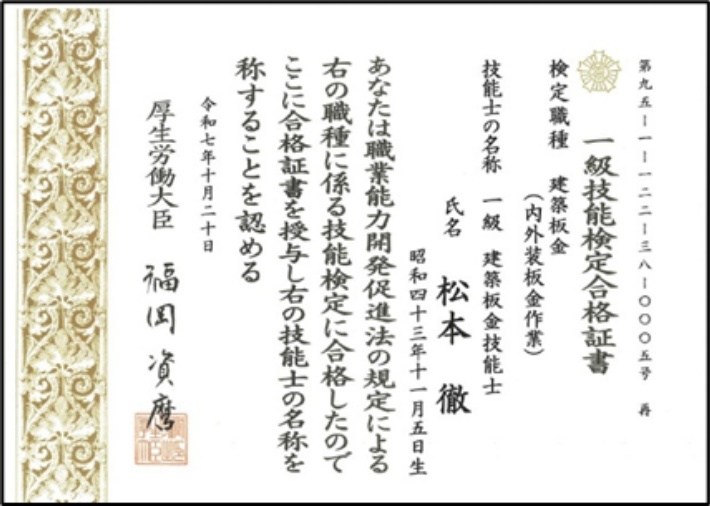 第九五ー一ー一二二ー三八ー〇〇〇五号 再
一級技能検定合格証書
検定職種 建築板金
（内外装板金作業）
技能士の名称 一級 建築板金技能士
氏名 松本 徹
昭和四十三年十一月五日生
あなたは職業能力開発促進法の規定による
右の職種に係る技能検定に合格したので
ここに合格証書を授与し右の技能士の名称を
称することを認める
令和七年十月二十日
厚生労働大臣 福岡資麿